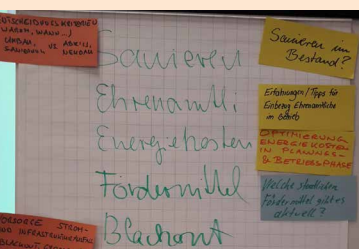 WARUM, WANN...?
UMBAU, VS ABRISS,
SANIERUNG NEUBAU
Sanieren
Ehrenamtl.
Energiekosten
Fördermittel
Blackout
Sanieren im
Bestand?
Erfahrungen/Tipps für
Einbezug Ehrenamtliche
im Betrieb
OPTIMIERUNG
ENERGIEKOSTEN
IN PLANUNGS-
& BETRIEBSPHASE
Welche staatlichen
Fördermittel gibt es
aktuell?
VORSORGE STROM-
UND INFRASTRUKTUR
BLACKOUT